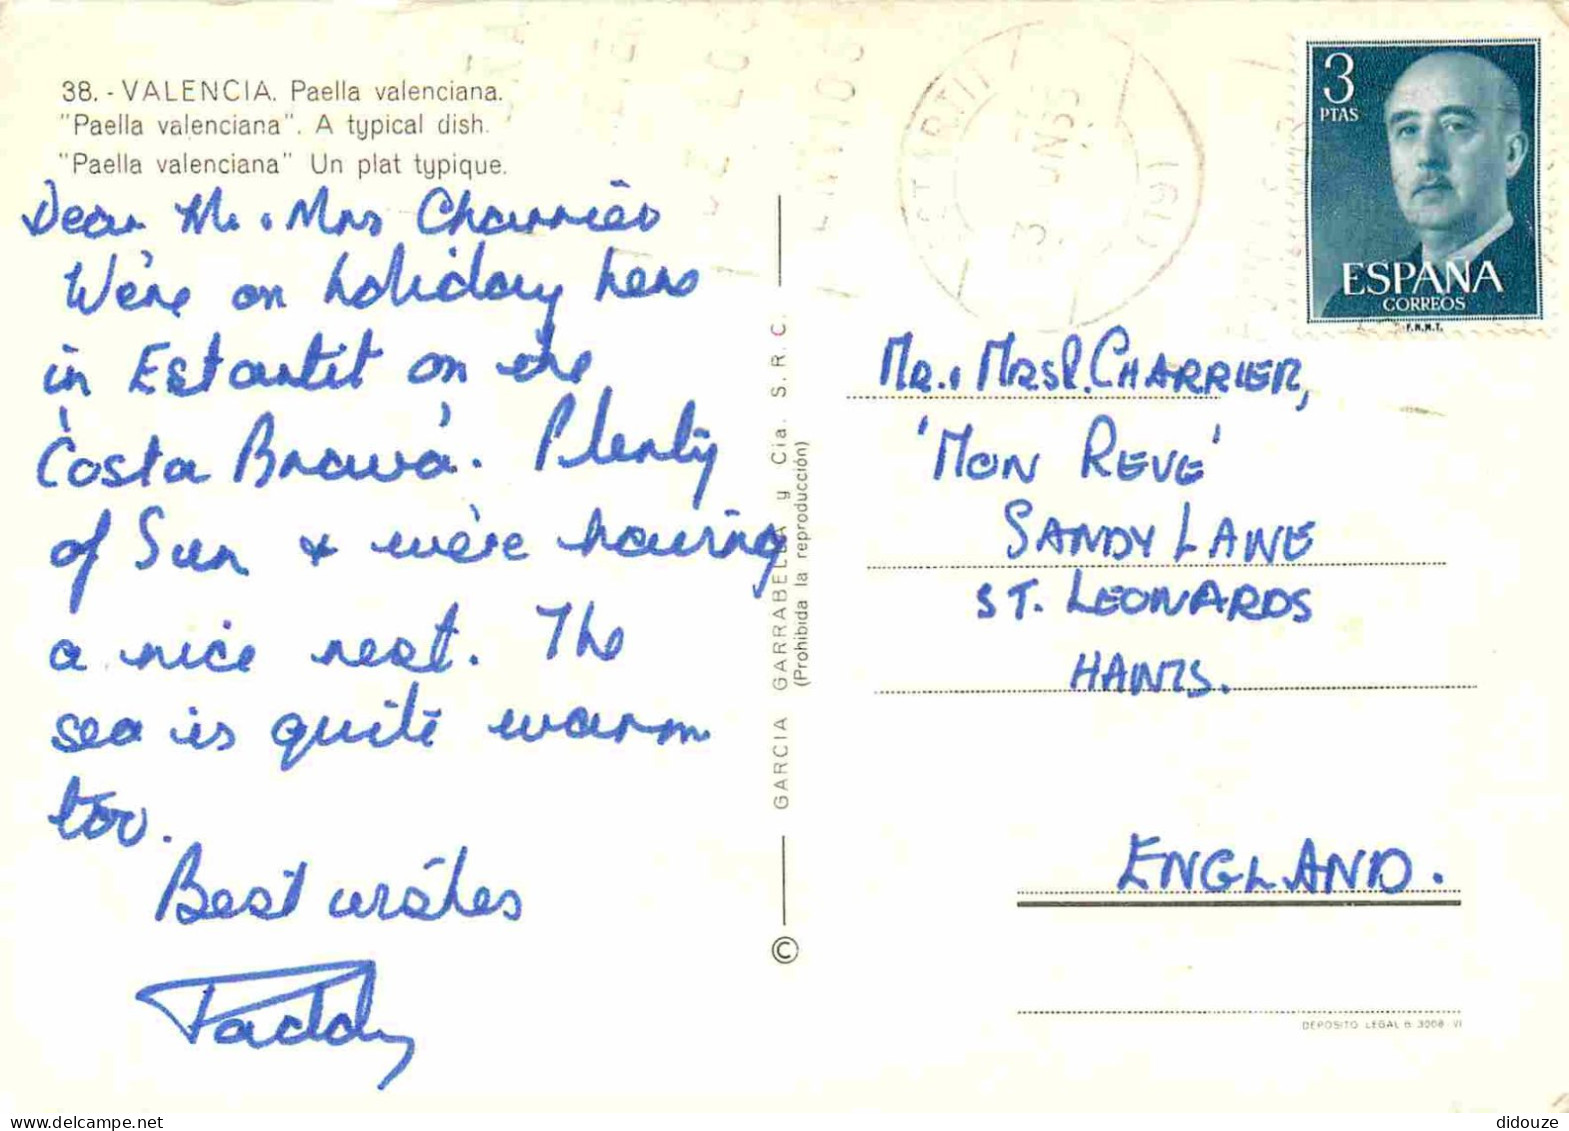 38. - VALENCIA. Paella valenciana.
"Paella valenciana". A typical dish.
"Paella valenciana" Un plat typique.
Dear Mr. Mrs Charrier
We're on holiday here
in Estartit on the
'Costa Brava'. Plenty
of Sun & we're having
a nice rest. The
sea is quite warm
too.
Best wishes
Paddy
GARCIA GARRABELLA y Cia. S. R. C.
(Prohibida la reproducción)
©
3
PTAS
ESPAÑA
CORREOS
F.N.M.T.
MR. MRS P. CHARRIER,
'MON REVE'
SANDY LANE
ST. LEONARDS
HANTS.
ENGLAND.
DEPOSITO LEGAL B. 3008 - VI
didouze